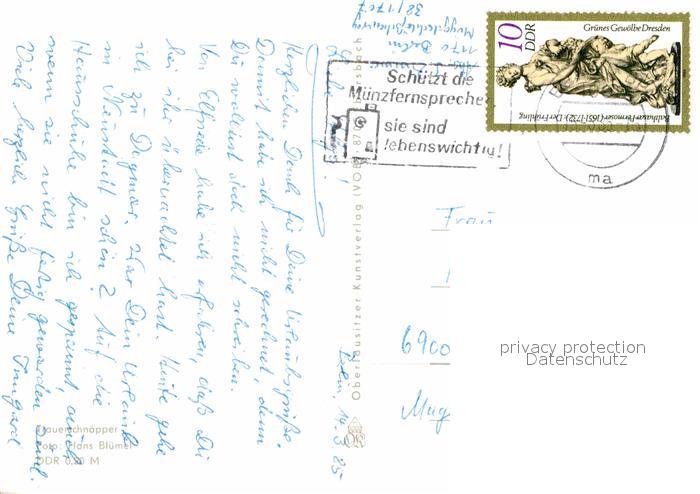 Berlin, 14.3.85
Liebe
Herzlichen Dank für Deine Urlaubsgrüße.
Damit habe ich nicht gerechnet, denn
Du wolltest doch nicht schreiben.
Von Elfriede habe ich erfahren, daß Du
bei ihr übernachtet hast. Heute gehe
ich zu Dagmar. War Dein Urlaub
in Neustadt schön? Auf die
Hausschuhe bin ich gespannt, auch
wenn sie nicht fertig geworden sind.
Viele herzliche Grüße Deine Irmgard
1170 Berlin
Müggelschlößchenweg
38/1707
Schützt die
Münzfernspreche
sie sind
lebenswichtig!
ma
10
DDR
Grünes Gewölbe Dresden
Balthasar Permoser (1651-1732): Der Frühling
Frau
6900
Mag
privacy protection
Datenschutz
Oberlausitzer Kunstverlag (VOB) · 8705 Ebersbach
Trauerschnäpper
Foto: Hans Blümel
DDR 0,20 M